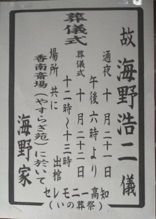 故 海野浩二 儀
葬儀式
通夜 十月二十一日
午後六時より
葬儀式 十月二十二日
十二時〜十三時 出棺
場所 共に
香南斎場(やすらぎ苑)に於いて
海野家
セレモニー高知
(いの葬祭)